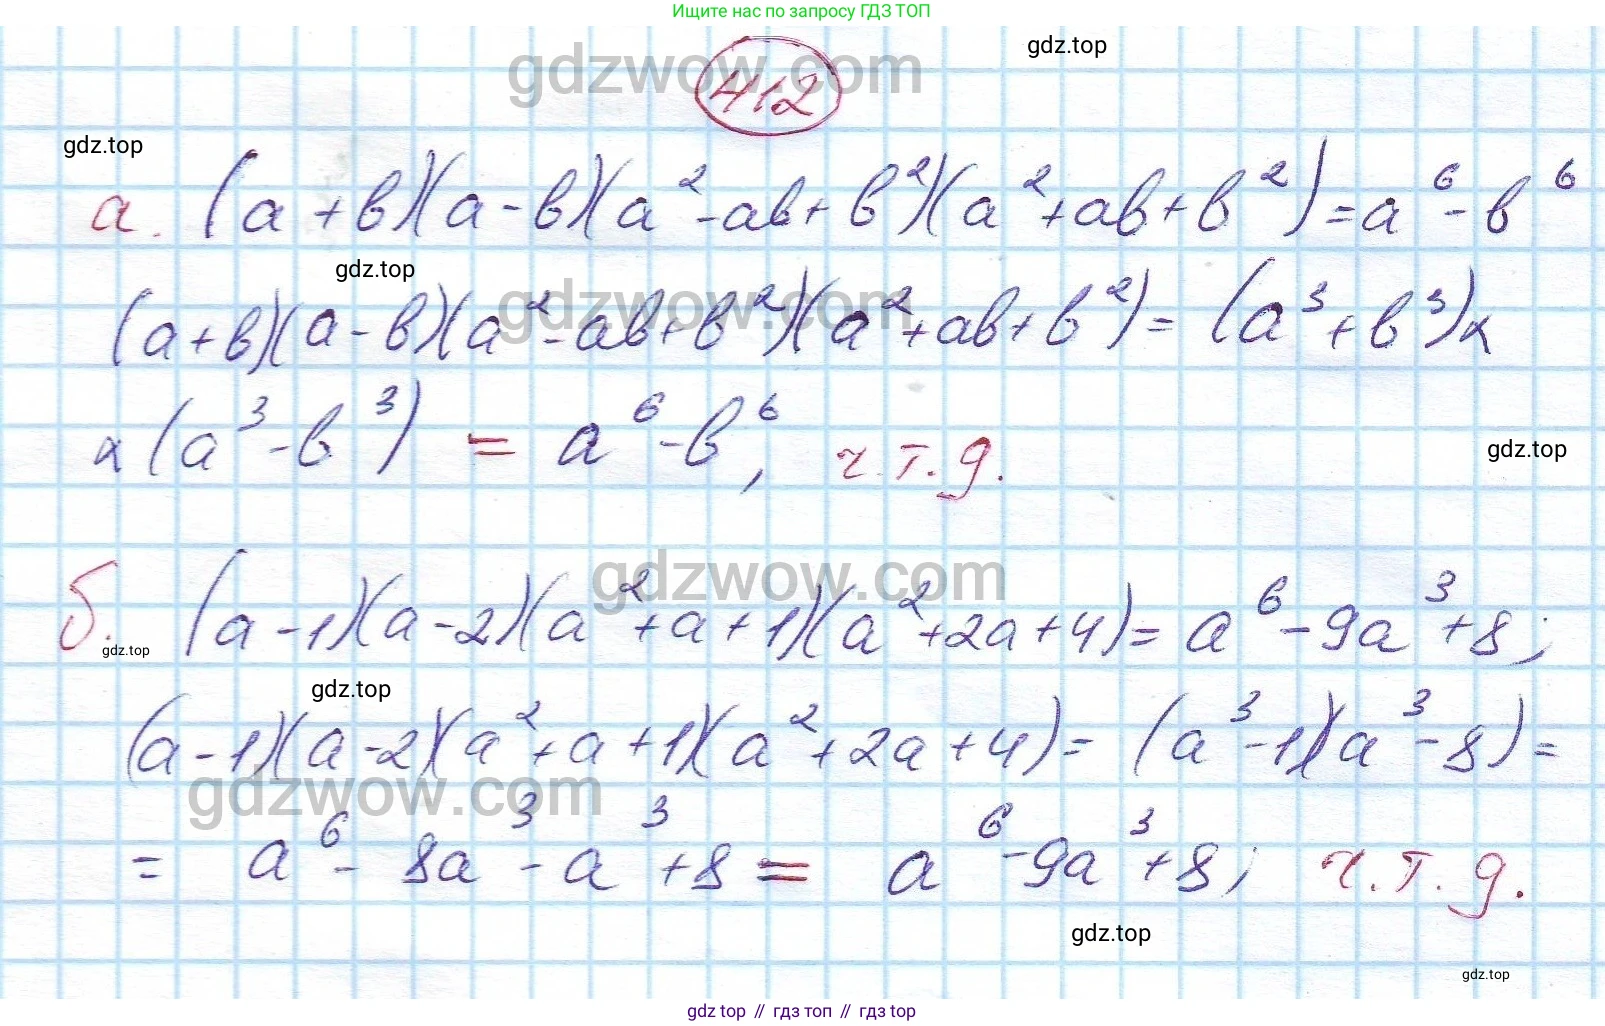 Ищите нас по запросу ГДЗ ТОП
gdzwow.com
412
gdz.top
gdz.top
а. (a+b)(a-b)(a²-ab+b²)(a²+ab+b²)=a⁶-b⁶
gdz.top
gdzwow.com
(a+b)(a-b)(a²-ab+b²)(a²+ab+b²)=(a³+b³)x
x(a³-b³) = a⁶-b⁶, ч.т.д.
gdz.top
gdzwow.com
б. (a-1)(a-2)(a²+a+1)(a²+2a+4)=a⁶-9a³+8;
gdz.top
gdz.top
(a-1)(a-2)(a²+a+1)(a²+2a+4)=(a³-1)(a³-8)=
gdzwow.com
= a⁶-8a³-a³+8 = a⁶-9a³+8; ч.т.д.
gdz.top
gdz.top
gdz top // гдз топ // гдз top